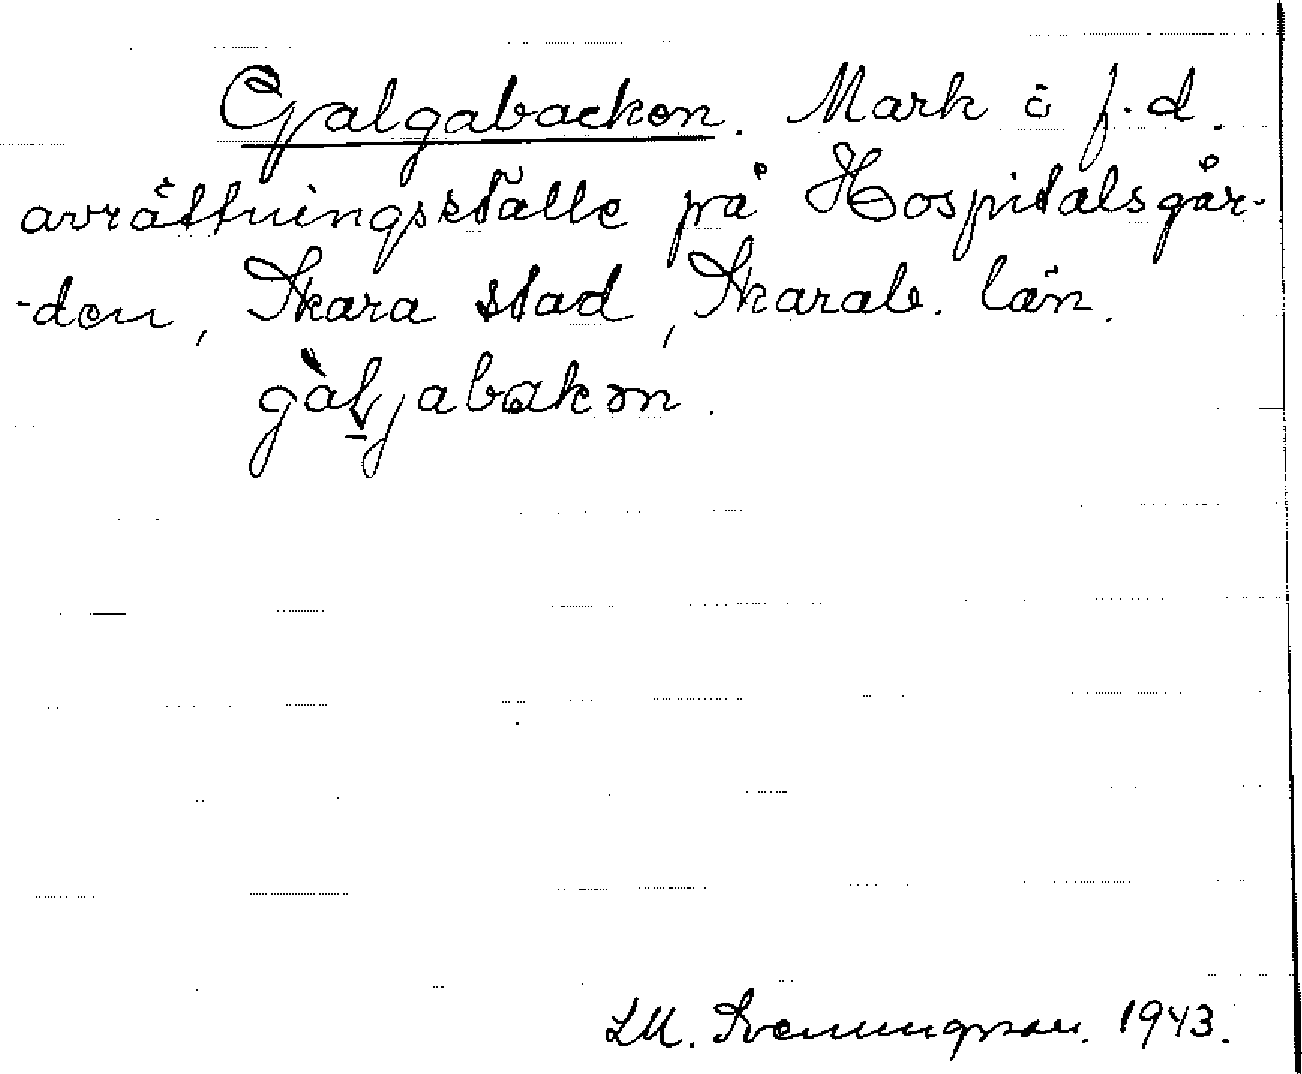 Galgabacken. Mark o f.d.
avrättningsställe på Hospitalsgår-
-den, Skara stad, Skarab. län.
gàljabakən.
LM. Svenungsson. 1943.